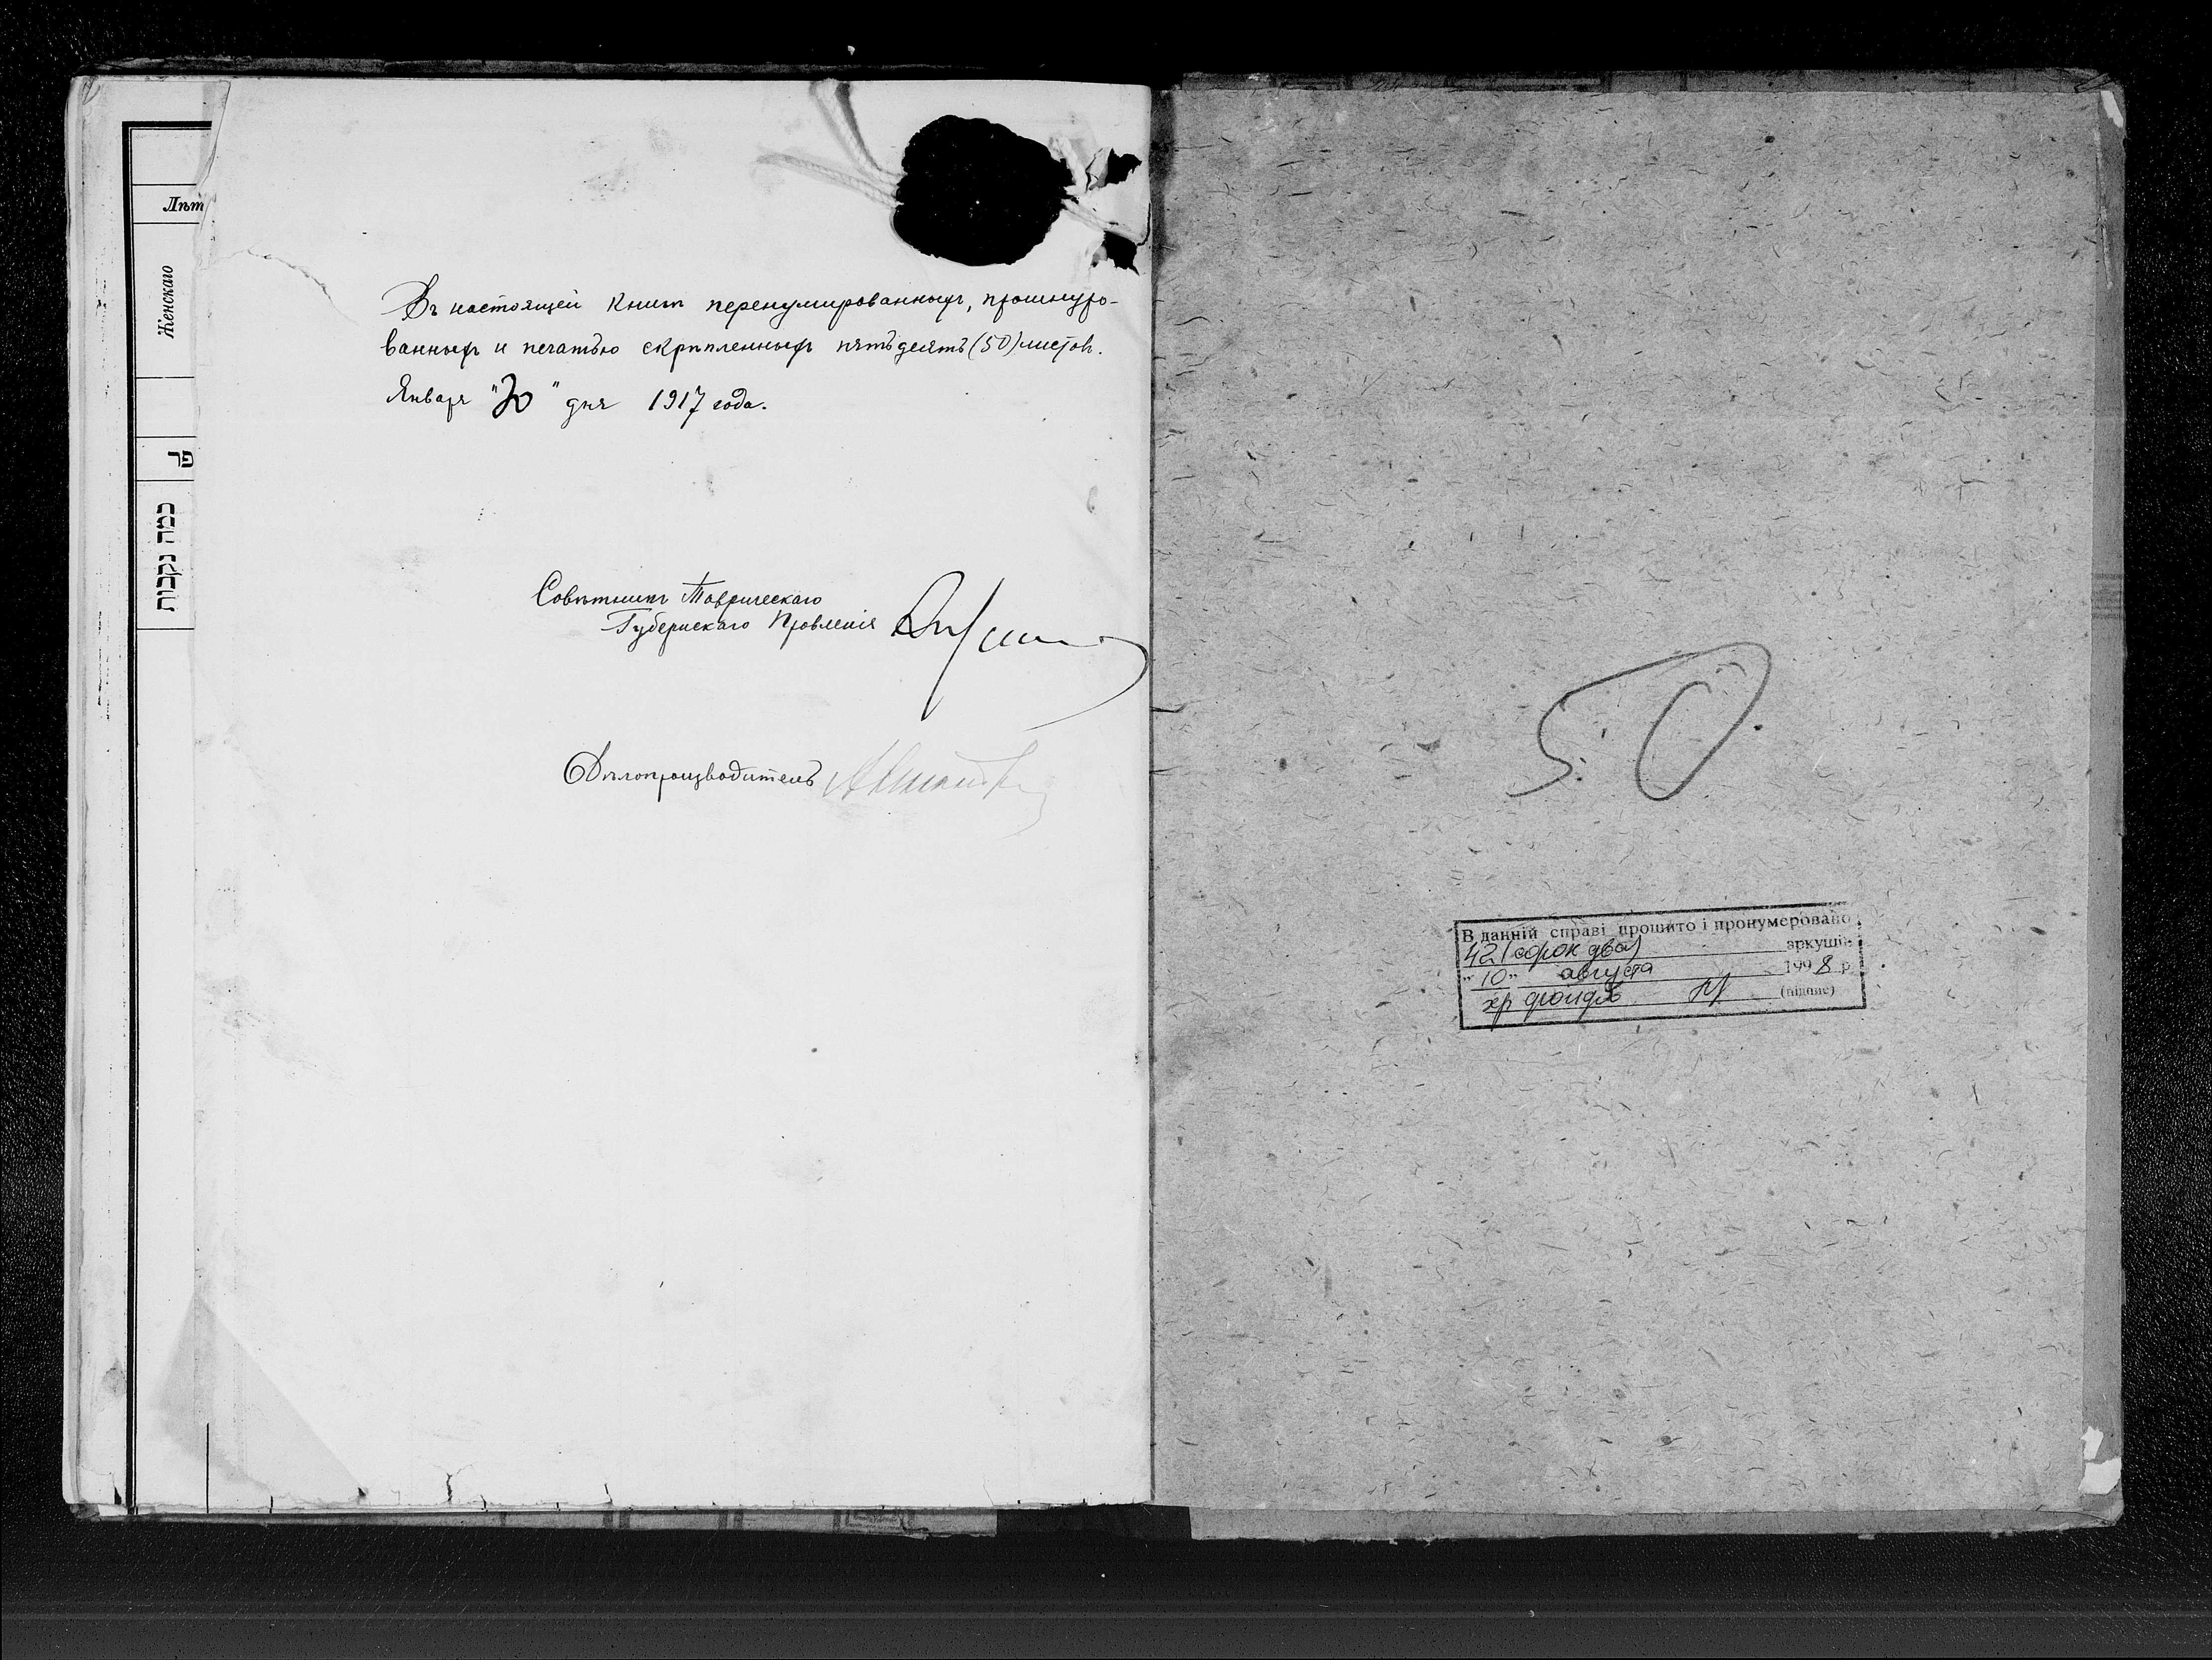 Лѣт
Женскаго
פר
כמה נקבות
Въ настоящей книгѣ перенумированныхъ, прошнуро-
ванныхъ и печатью скрѣпленныхъ пятьдесятъ (50) листовъ.
Января "30" дня 1917 года.
Совѣтникъ Таврическаго
Губернскаго Правленія
Дѣлопроизводитель
50
В данній справі прошито і пронумеровано
42 (сорок два) аркушів
"10" августа 1998 р
хр фондов (підпис)